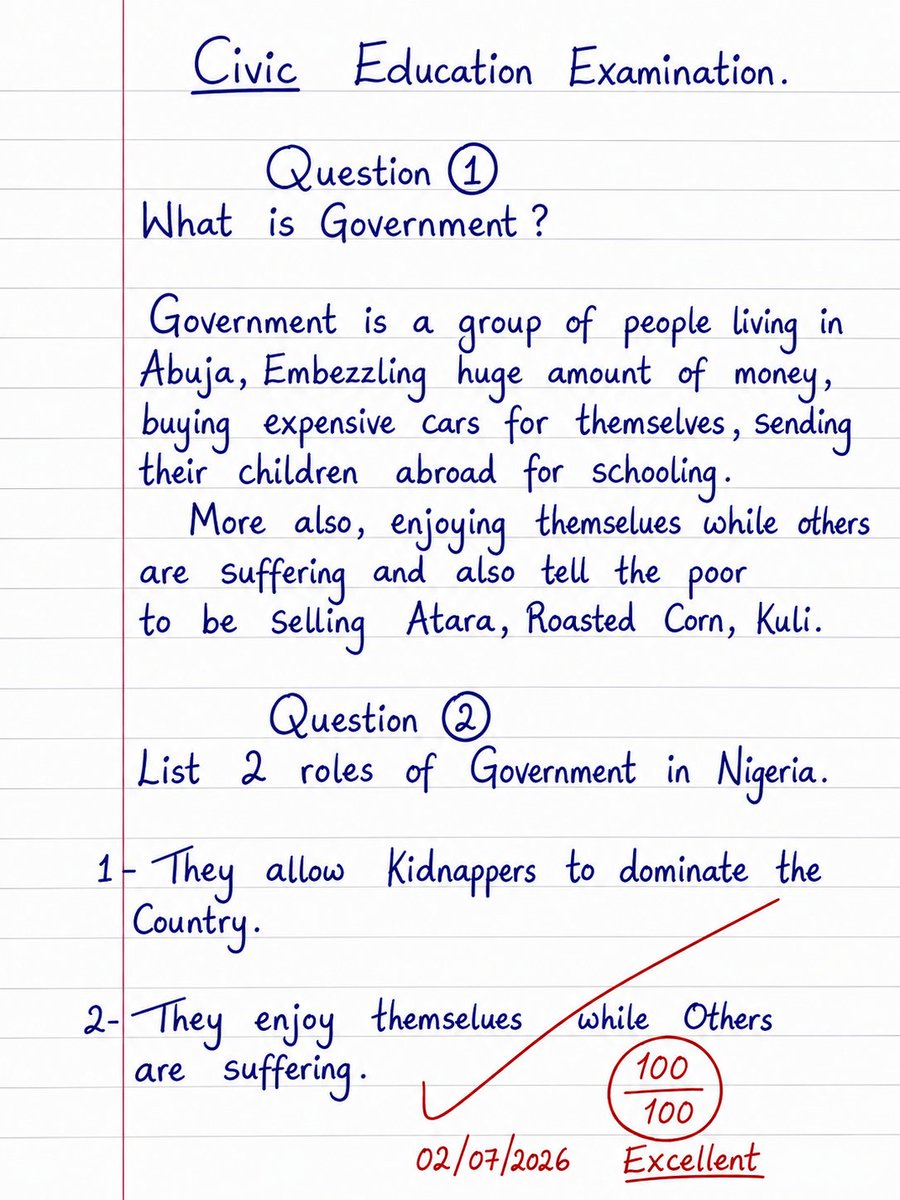 Civic Education Examination.
Question 1
What is Government?
Government is a group of people living in
Abuja, Embezzling huge amount of money,
buying expensive cars for themselves, sending
their children abroad for schooling.
More also, enjoying themselues while others
are suffering and also tell the poor
to be selling Atara, Roasted Corn, Kuli.
Question 2
List 2 roles of Government in Nigeria.
1- They allow Kidnappers to dominate the
Country.
2- They enjoy themselues while Others
are suffering.
100
100
02/07/2026 Excellent